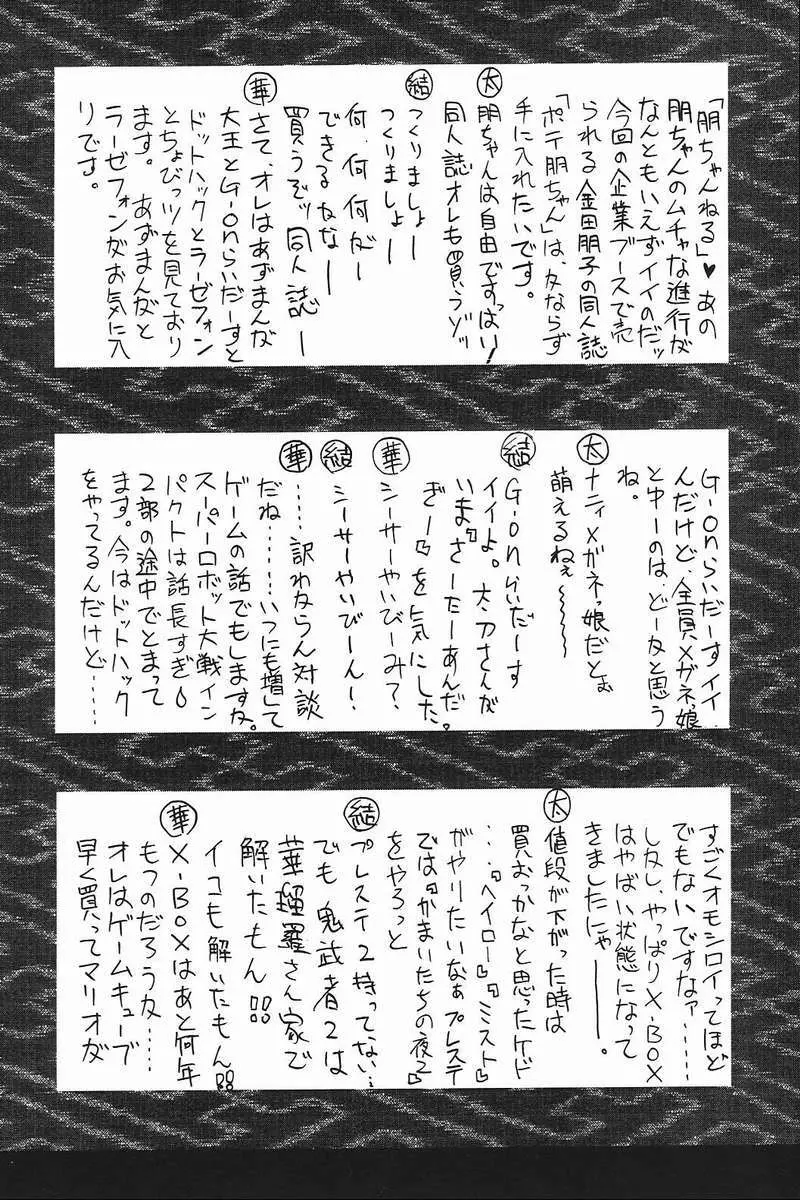 「朋ちゃんねる」♥あの
朋ちゃんのムチャな進行が
なんともいえずイイのだッ
今回の企業ブースで売
られる金田朋子の同人誌
「ポテ朋ちゃん」は、必ならず
手に入れたいです。
太 朋ちゃんは自由ですっはい!
同人誌オレも買うゾッ
結 つくりましょー
つくりましょー
何、何、何がー
できるかなー
買うぞッ同人誌ー
華 さて、オレはあずまんが
大王とG-onらいだーすと
ドットハックとラーゼフォン
とちょびッツを見ており
ます。あずまんがと
ラーゼフォンがお気に入
りです。
G-onらいだーすイイ
んだけど、全員メガネっ娘
とゆーのは、どーかと思う
ね。
太 ナニィメガネっ娘だとぉ
萌えるねぇ〜〜〜〜
結 G-onらいだーす
イイよ。太刀さんが
いま『さーたーあんだ
ぎー』を気にした。
華 シーサーやいびーみ?
結 シーサーやいびーん!
華 ……訳わからん対談
だね………いつにも増して
ゲームの話でもしますか。
スーパーロボット大戦イン
パクトは話長すぎ
2部の途中でとまって
ます。今はドットハック
をやってるんだけど……
すごくオモシロイってほど
でもないですなァ……
しかし、やっぱりX-BOX
はやばい状態になって
きましたにゃー。
太 値段が下がった時は
買おっかなと思ったケド
…『ヘイロー』『ミスト』
がやりたいなぁプレステ
では『かまいたちの夜2』
をやろっと
結 プレステ2持ってない…
でも鬼武者2は
華瑠羅さん家で
解いたもん!!
イコも解いたもん!!
華 X-BOXはあと何年
もつのだろうか……
オレはゲームキューブ
早く買ってマリオが